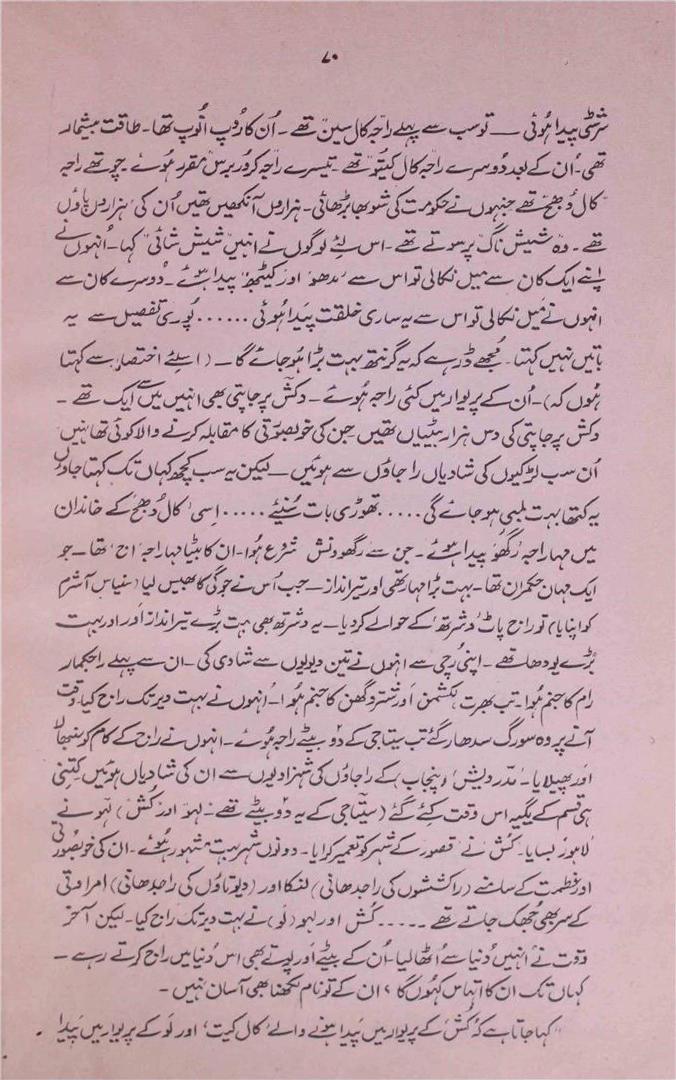 ۷۰
سرشٹی پیدا ہوئی — تو سب سے پہلے راجہ کال سین تھے ۔ اُن کا رُوپ انُوپ تھا ۔ طاقت بیشمار
تھی ۔ اُن کے بعد دُوسرے راجہ کال کیتُو تھے ۔ تیسرے راجہ کرور برس مقرر ہوئے ۔ چوتھے راجہ
کال دُھج تھے جنہوں نے حکومت کی شوبھا بڑھائی ۔ ہزاروں آنکھیں تھیں اُن کی ہزاروں پاؤں
تھے ۔ وہ شیش ناگ پر سوتے تھے ۔ اس لئے لوگوں نے انہیں شیش شائی کہا ۔ اُنہوں نے
اپنے ایک کان سے میل نکالی تو اس سے مدھو اور کیٹبھ پیدا ہوئے ۔ دُوسرے کان سے
انہوں نے مَیل نکالی تو اس سے یہ ساری خلقت پَیدا ہُوئی ...... پُوری تفصیل سے یہ
باتیں نہیں کہتا ۔ مُجھے ڈر ہے کہ یہ گرنتھ بہت بڑا ہو جائے گا ۔ (اسلئے اختصار سے کہتا
ہُوں کہ) ۔ اُن کے پریوار میں کئی راجہ ہُوئے ۔ دکش پرجاپتی بھی انہیں میں سے ایک تھے ۔
دکش پرجاپتی کی دس ہزار بیٹیاں تھیں جن کی خوبصورتی کا مقابلہ کرنے والا کوئی تھا نہیں
اُن سب لڑکیوں کی شادیاں راجاؤں سے ہوئیں — لیکن یہ سب کچھ کہاں تک کہتا جاؤں
یہ کتھا بہت لمبی ہو جائے گی ..... تھوڑی بات سُنیئے ..... اِسی کال دُھج کے خاندان
میں مہاراجہ رگھُو پیدا ہوئے ۔ جن سے رگھو ونش شرُع ہوا ۔ ان کا بیٹا مہاراجہ اج تھا ۔ جو
ایک مہان حکمران تھا ۔ بہت بڑا مہارتھی اور تیر انداز — جب اُس نے جوگی کا بھیس لیا (سنیاس آشرم
کو اپنایا) تو راج پاٹ دشرتھ کے حوالے کر دیا ۔ یہ دشرتھ بھی بہت بڑے تیر انداز اور اور بہت
بڑے یودھا تھے ۔ اپنی رُچی سے انہوں نے تین دیویوں سے شادی کی ۔ ان سے پہلے راجکمار
رام کا جنم ہُوا ۔ تب بھرت لکشمن اور شترُوگھن کا جنم ہُوا ۔ اُنہوں نے بہت دیر تک راج کیا وقت
آنے پر وہ سورگ سدھار گئے تب سیتا جی کے دو بیٹے راجہ ہُوئے ۔ انہوں نے راج کے کام کو سنبھالا
اور پھیلایا ۔ مدر دیش (پنجاب) کے راجاؤں کی شہزادیوں سے ان کی شادیاں ہوئیں کِتنی
ہی قسم کے یگیہ اس وقت کئے گئے (سیتا جی کے یہ دو بیٹے تھے ۔ لہو اور کُش) لہو نے
لاہور بسایا ۔ کُش نے قصور کے شہر کو تعمیر کرایا ۔ دونوں شہر بہت مشہور ہُوئے ۔ ان کی خوبصورتی
اور عظمت کے سامنے (راکششوں کی راجدھانی) لنکا اور (دیوتاؤں کی راجدھانی) امراوتی
کے سر بھی جُھک جاتے تھے ..... کُش اور لہو (لَو) نے بہت دیر تک راج کیا ۔ لیکن آخر
وقت نے انہیں دُنیا سے اُٹھا لیا ۔ اُن کے بیٹے اور پوتے بھی اس دُنیا میں راج کرتے رہے ۔
کہاں تک ان کا اتہاس کہُوں گا ، ان کے تو نام لکھنا بھی آسان نہیں ۔
"کہا جاتا ہے کہ کُش کے پریوار میں پَیدا ہونے والے 'کال کیت' اور لَو کے پریوار میں پَیدا